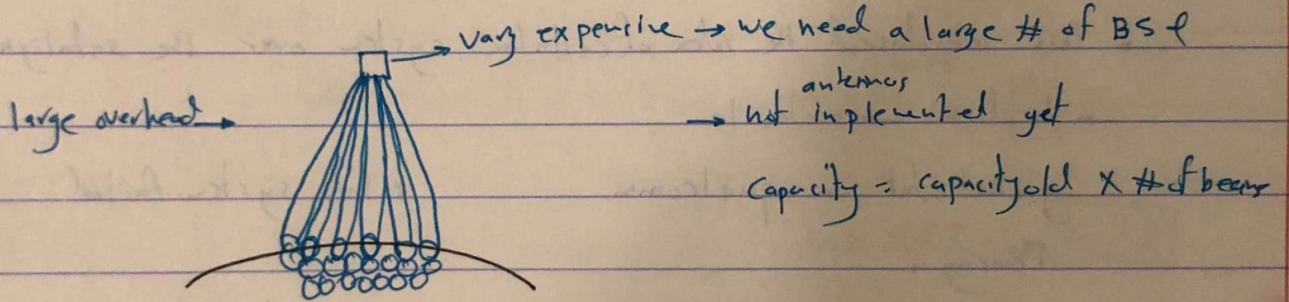 vary expensive → we need a large # of BS &
antennas
large overhead →
→ not implemented yet
Capacity = capacity old × # of beams